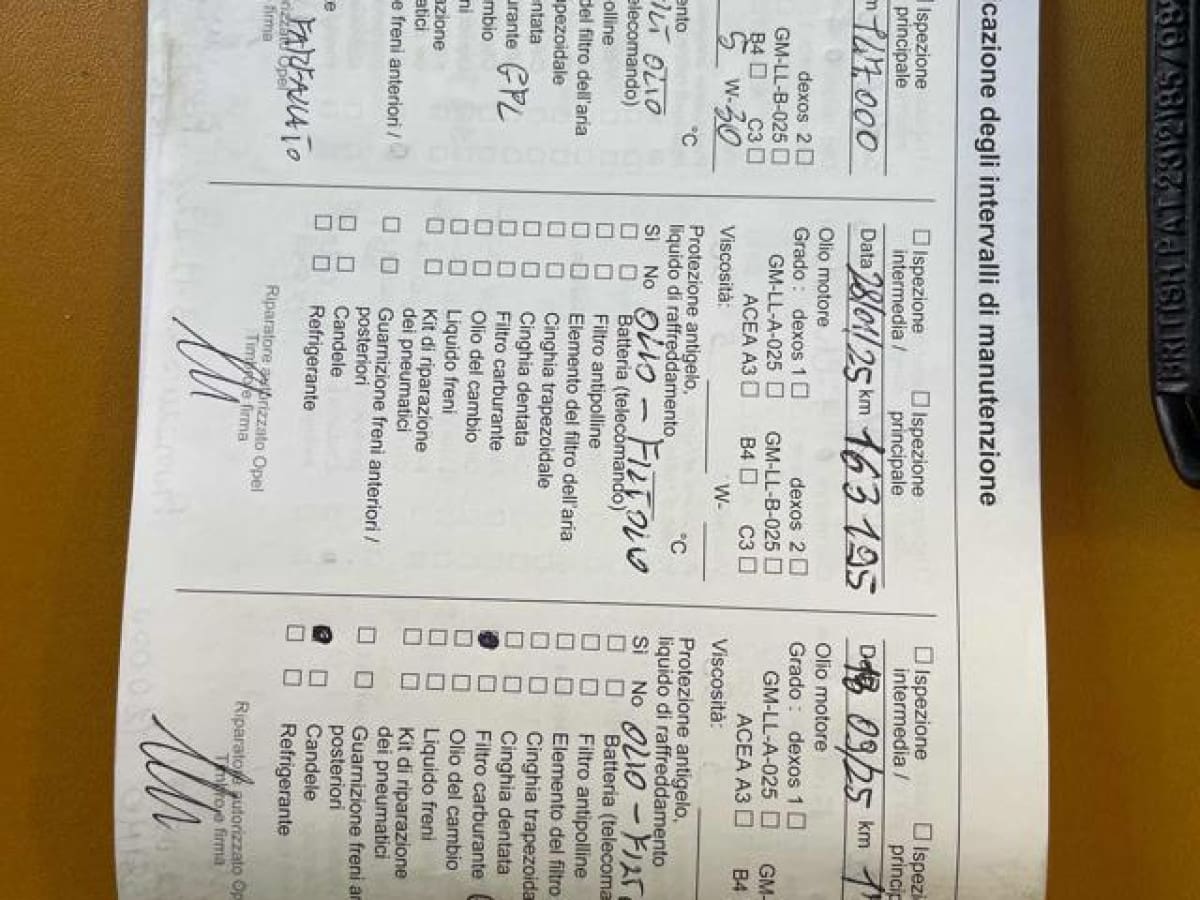 cazione degli intervalli di manutenzione
Ispezione
principale
147.000
dexos 2
GM-LL-B-025
B4 C3
5 W-30
°C
OLIO
elecomando)
olline
del filtro dell'aria
apezoidale
entata
urante GPL
ambio
ni
azione
atici
e freni anteriori /
firma
Ispezione intermedia / Ispezione principale
Data 28/01/25 km 163195
Olio motore
Grado : dexos 1 dexos 2
GM-LL-A-025 GM-LL-B-025
ACEA A3 B4 C3
Viscosità: W-
Protezione antigelo,
liquido di raffreddamento °C
Sì No OLIO - FILT OLIO
Batteria (telecomando)
Filtro antipolline
Elemento del filtro dell'aria
Cinghia trapezoidale
Cinghia dentata
Filtro carburante
Olio del cambio
Liquido freni
Kit di riparazione
dei pneumatici
Guarnizione freni anteriori /
posteriori
Candele
Refrigerante
Riparatore autorizzato Opel
Timbro e firma
Ispezione intermedia / Ispezi
principa
09/25 km 1
Olio motore
Grado : dexos 1
GM-LL-A-025 GM-
ACEA A3 B4
Viscosità:
Protezione antigelo,
liquido di raffreddamento
Sì No OLIO - FILT
Batteria (telecoma
Filtro antipolline
Elemento del filtro
Cinghia trapezoida
Cinghia dentata
Filtro carburante (
Olio del cambio
Liquido freni
Kit di riparazione
dei pneumatici
Guarnizione freni an
posteriori
Candele
Refrigerante
Riparatore autorizzato Op
Timbro e firma